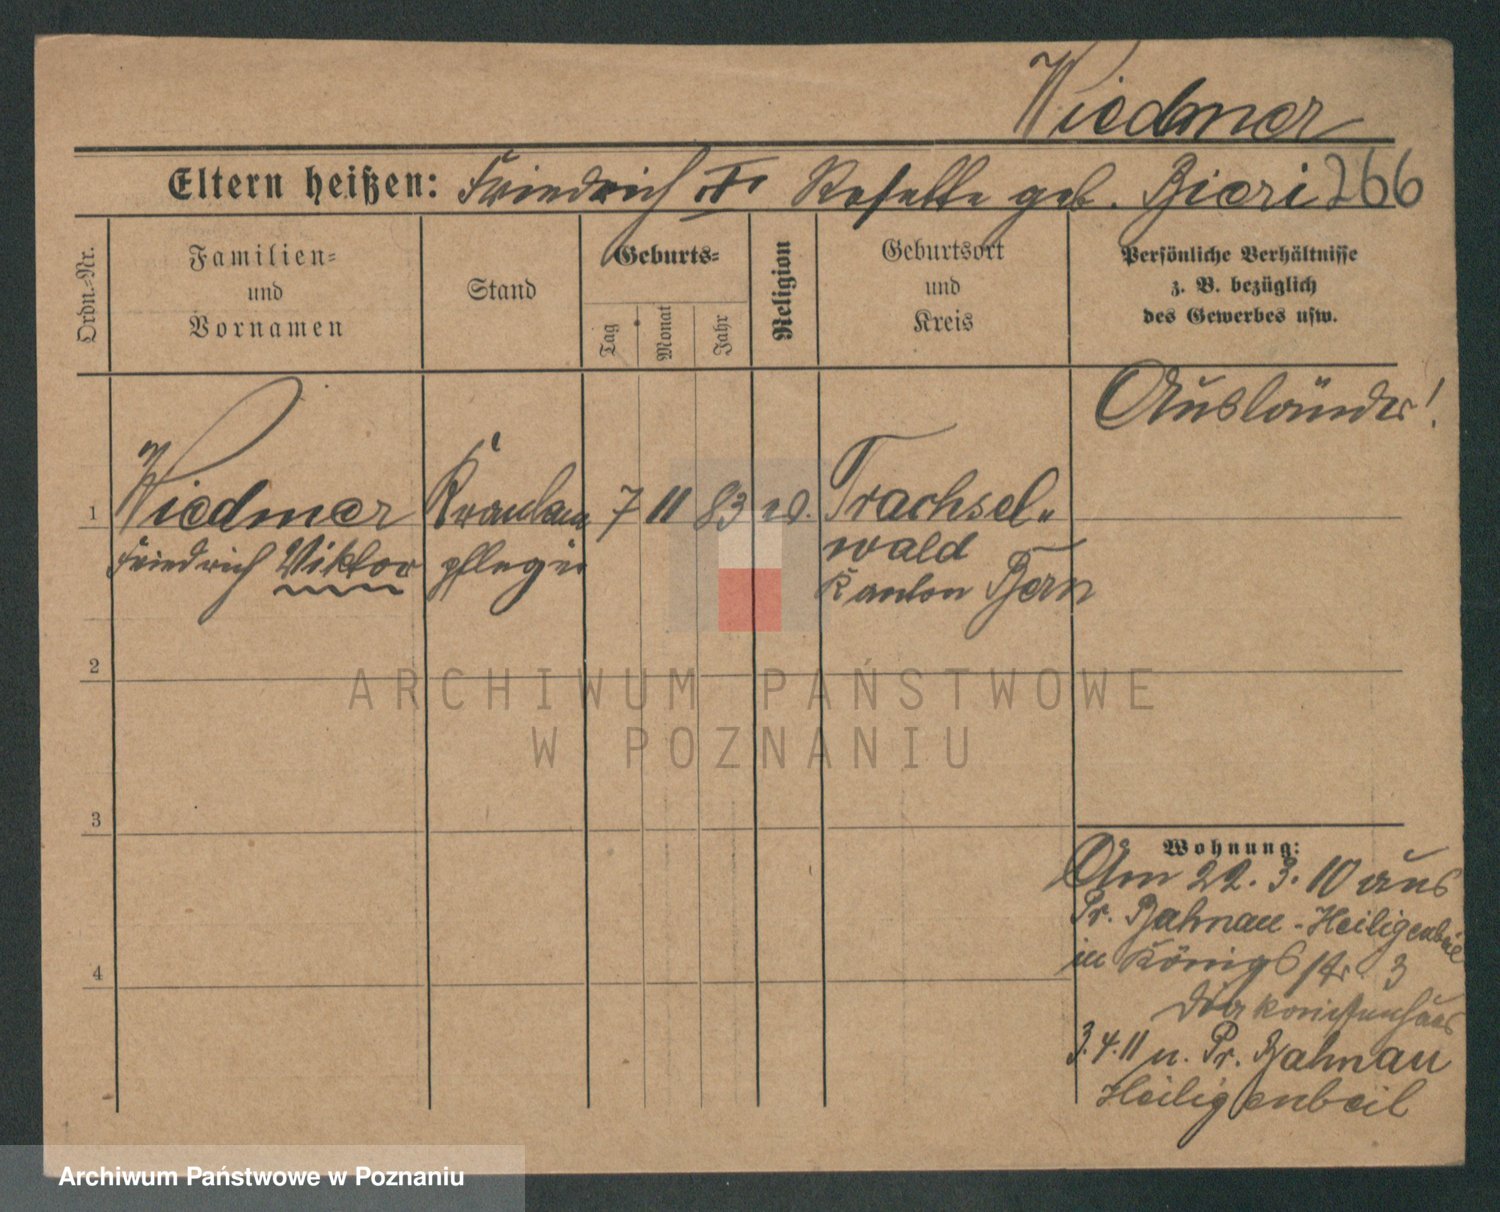 Wiedmer
Eltern heißen: Friedrich u. Rosette geb. Bieri 266
Ordn.-Nr.
Familien-
und
Vornamen
Stand
Geburts-
Tag
Monat
Jahr
Religion
Geburtsort
und
Kreis
Persönliche Verhältnisse
z. B. bezüglich
des Gewerbes usw.
Ausländer!
1 Wiedmer Kranken 7 11 83 ev. Trachsel-
Friedrich Viktor pfleger wald
Kanton Bern
2
ARCHIWUM PAŃSTWOWE
W POZNANIU
3
Wohnung:
Am 22. 3. 10 aus
Pr. Bahnau - Heiligenbeil
in Königstr. 3
Diakonissenhaus
3.4.11 n. Pr. Bahnau
Heiligenbeil
4
Archiwum Państwowe w Poznaniu